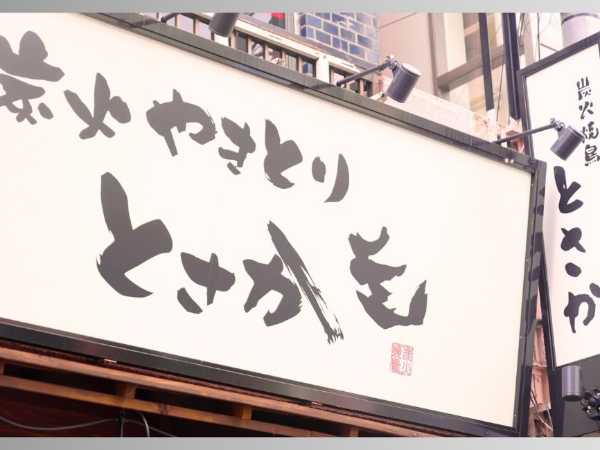 炭火やきとり
とさか
炭火焼鳥
とさか